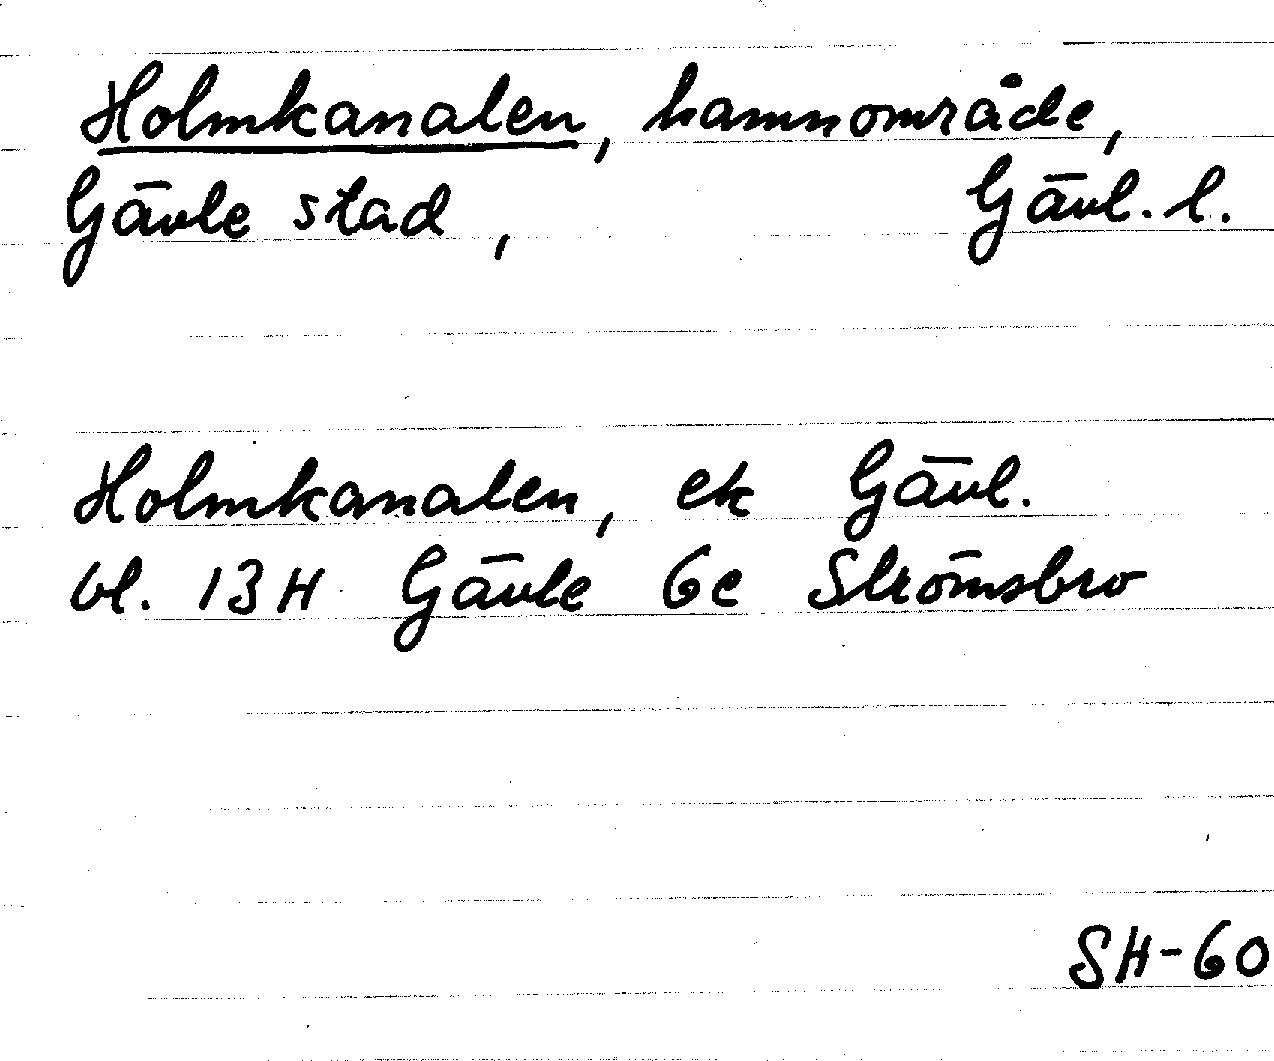 Holmkanalen, hamnområde,
Gävle stad, Gävl. l.
Holmkanalen, ek Gävl.
bl. 13H Gävle 6e Strömsbro
SH-60